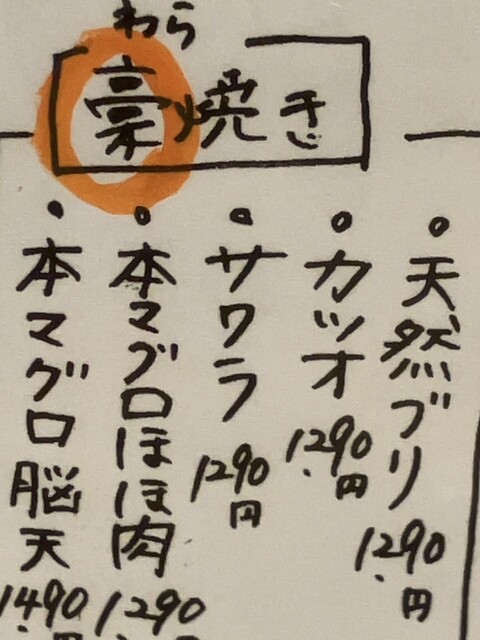 わら
藁焼き
・天然ブリ 1290円
・カツオ 1290円
・サワラ 1290円
・本マグロほほ肉 1290円
・本マグロ脳天 1490円